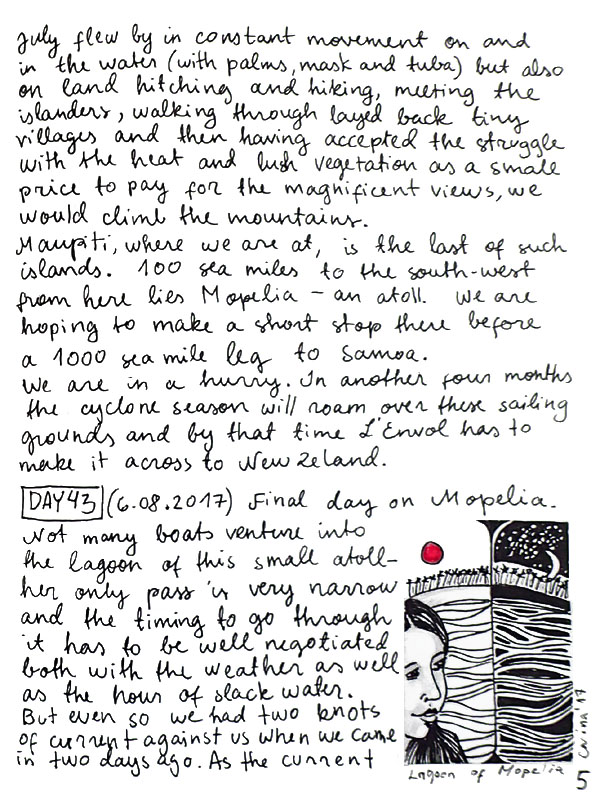 July flew by in constant movement on and
in the water (with palms, mask and tuba) but also
on land hitching and hiking, meeting the
islanders, walking through layed back tiny
villages and then having accepted the struggle
with the heat and lush vegetation as a small
price to pay for the magnificent views, we
would climb the mountains.
Maupiti, where we are at, is the last of such
islands. 100 sea miles to the south-west
from here lies Mopelia – an atoll. We are
hoping to make a short stop there before
a 1000 sea mile leg to Samoa.
We are in a hurry. In another four months
the cyclone season will roam over these sailing
grounds and by that time L'Envol has to
make it across to New Zeland.
DAY 43 (6.08.2017) Final day on Mopelia.
Not many boats venture into
the lagoon of this small atoll–
her only pass is very narrow
and the timing to go through
it has to be well negotiated
both with the weather as well
as the hour of slack water.
But even so we had two knots
of current against us when we came
in two days ago. As the current
Lagoon of Mopelia
Carina '17
5